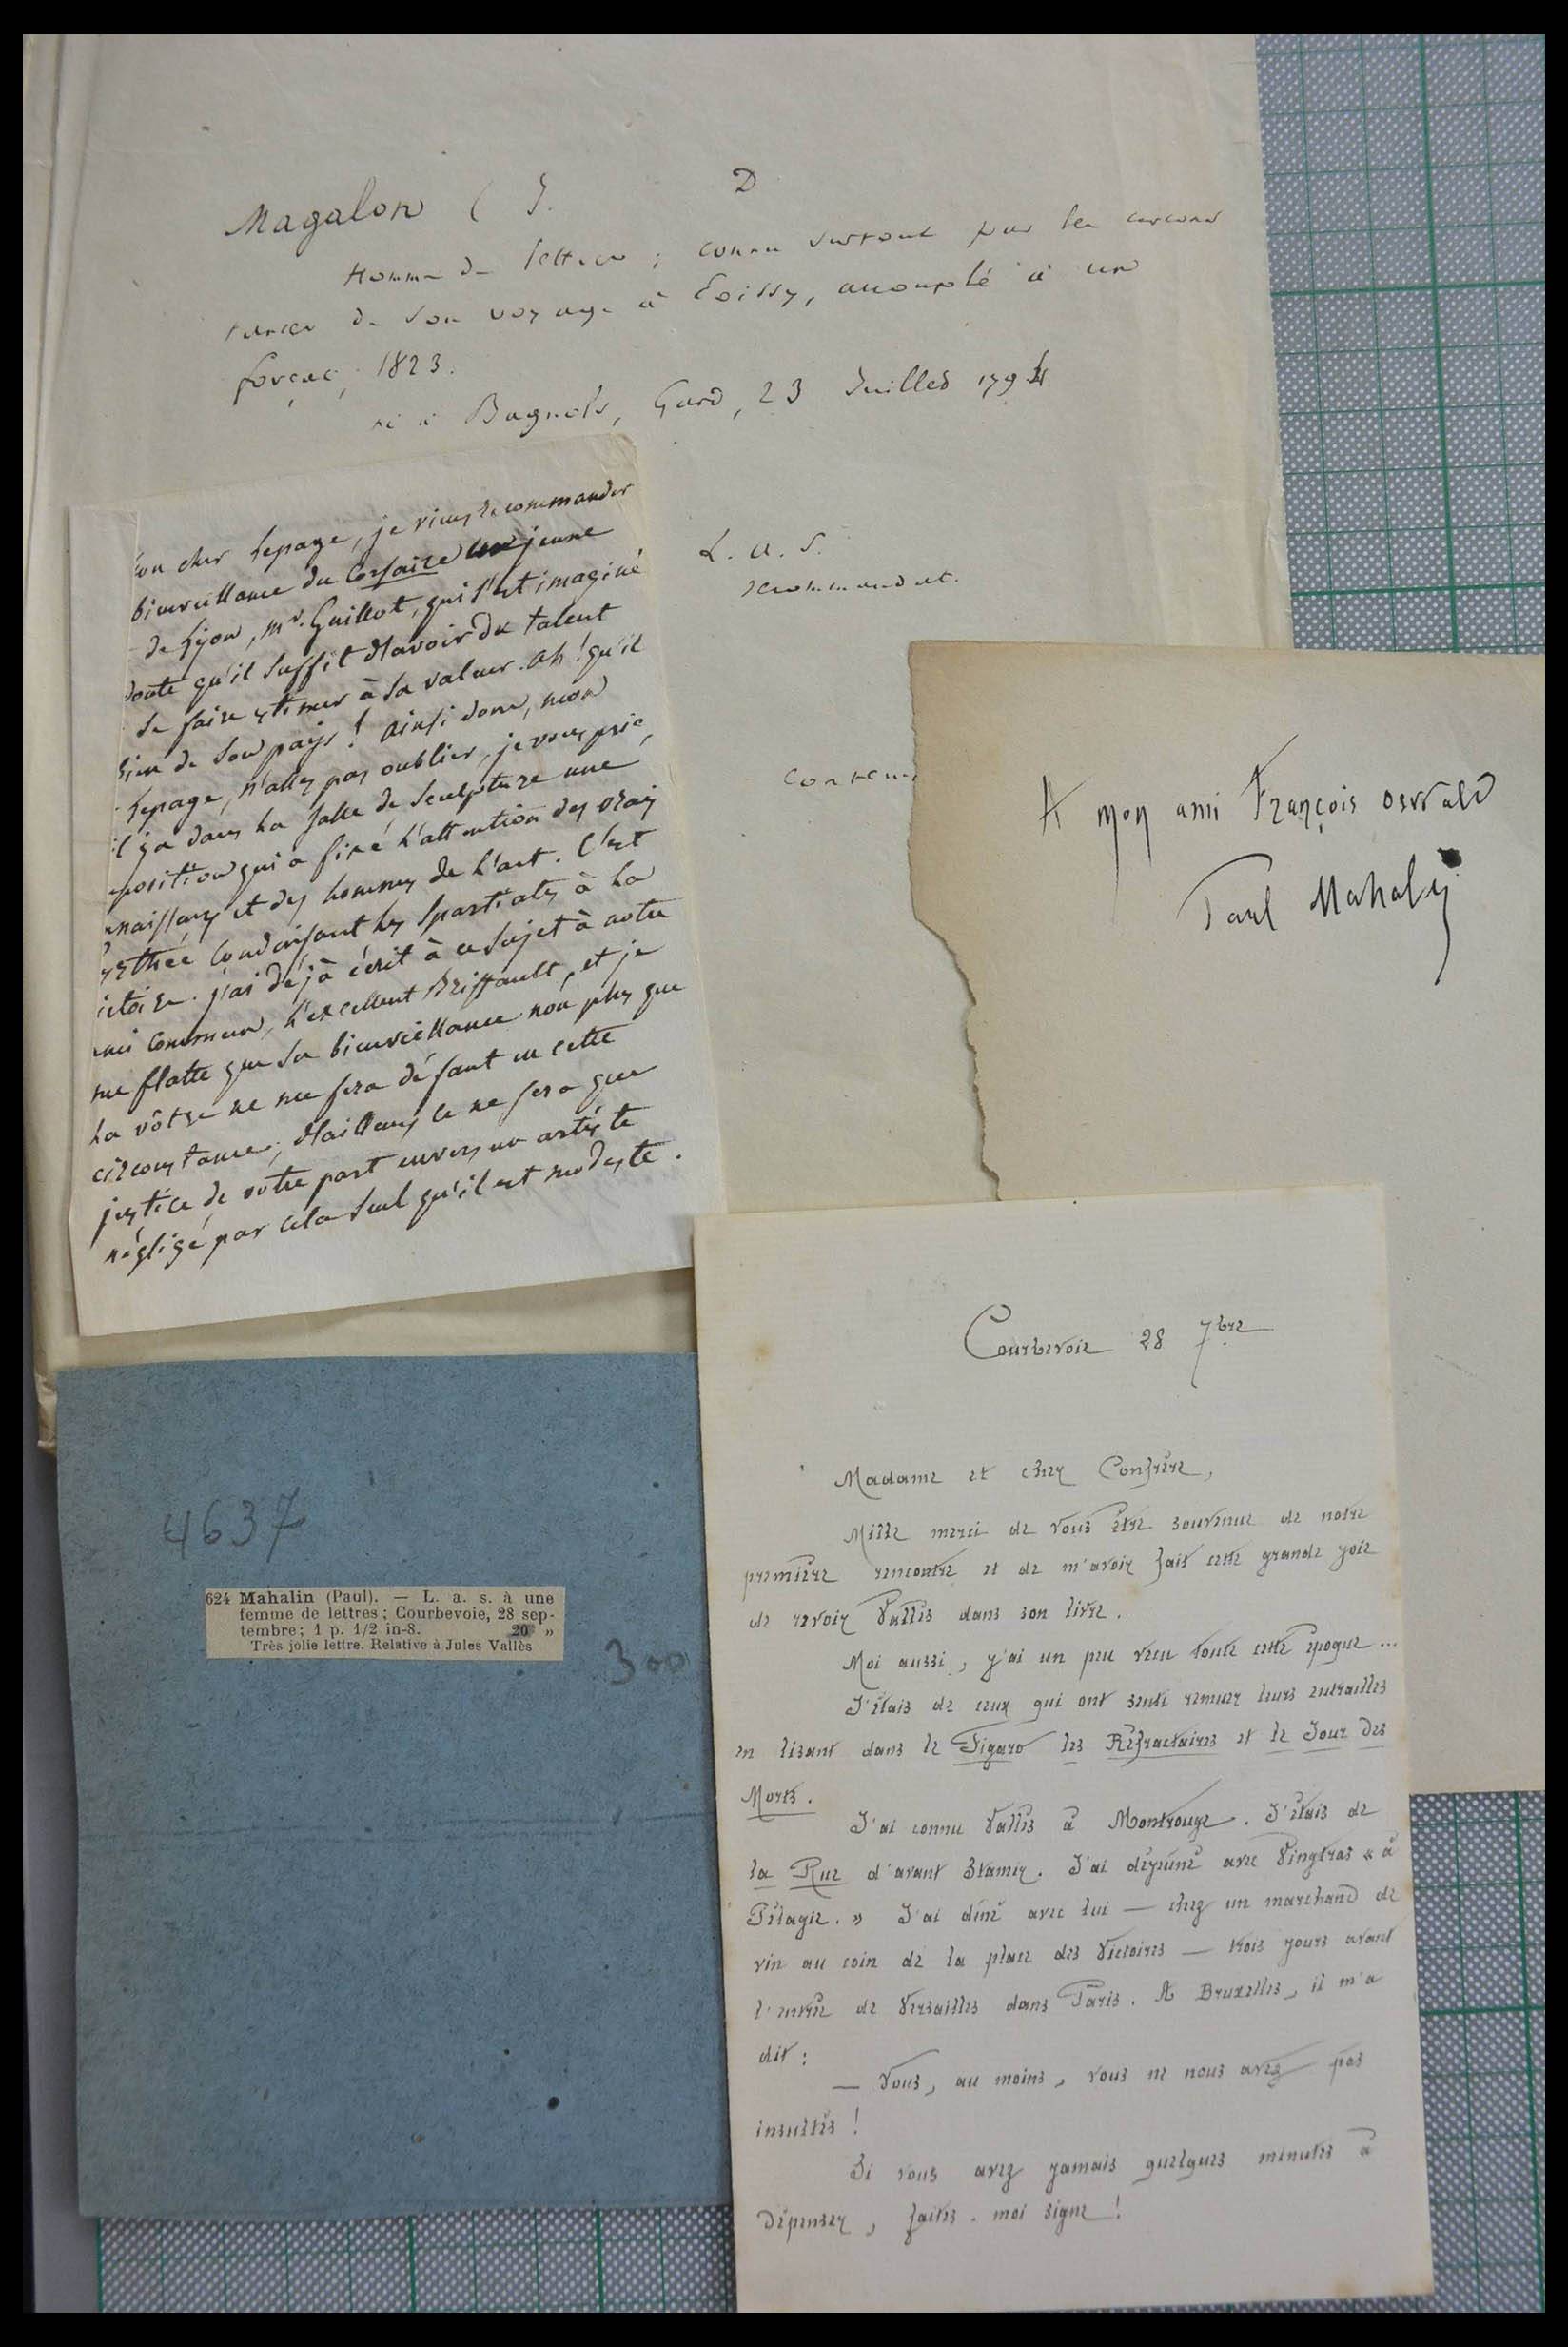 Magalon ( J. D
Homme de lettres ; connu surtout par les circons
tances de son voyage à Poissy, accouplé à un
forçat, 1823.
né à Bagnols, Gard, 23 Juillet 1794
L. a. s.
recommandat.
Conten
on cher Lepage, je viens recommander
bienveillance du Corsaire un jeune
de Lyon, mr. Guillot, qui s'est imaginé
doute qu'il suffit d'avoir du talent
se faire estimer à sa valeur. Ah ! qu'il
bien de son pays ! Ainsi donc, mon
Lepage, n'allez pas oublier, je vous prie,
il y a dans la salle de sculpture une
position qui a fixé l'attention des vrais
naissans et des hommes de l'art. C'est
yrthée conduisant les Spartiates à la
ictoire. j'ai déjà écrit à ce sujet à notre
ami commun, l'excellent Briffault, et je
me flatte que sa bienveillance non plus que
la vôtre ne me fera défaut en cette
circonstance ; d'ailleurs ce ne sera que
justice de votre part envers un artiste
négligé par cela seul qu'il est modeste.
A mon ami François Oswald
Paul Mahaly
4637
624 Mahalin (Paul). — L. a. s. à une
femme de lettres ; Courbevoie, 28 sep-
tembre ; 1 p. 1/2 in-8. 20 »
Très jolie lettre. Relative à Jules Vallès
300
Courbevoie 28 7bre
Madame et cher Confrère,
Mille merci de vous être souvenue de notre
première rencontre et de m'avoir fait cette grande joie
de revoir Vallès dans son livre.
Moi aussi, j'ai un peu vécu toute cette époque ...
J'étais de ceux qui ont senti remuer leurs entrailles
en lisant dans le Figaro les Réfractaires et le Jour des
Morts.
J'ai connu Vallès à Montrouge. J'étais de
la Rue d'avant Stamir. J'ai déjeûné avec Vingtras « à
Pélagie. » J'ai dîné avec lui — chez un marchand de
vin au coin de la place des Victoires — trois jours avant
l'entrée de Versailles dans Paris. A Bruxelles, il m'a
dit :
— Vous, au moins, vous ne nous avez pas
insultés !
Si vous avez jamais quelques minutes à
dépenser, faites-moi signe !